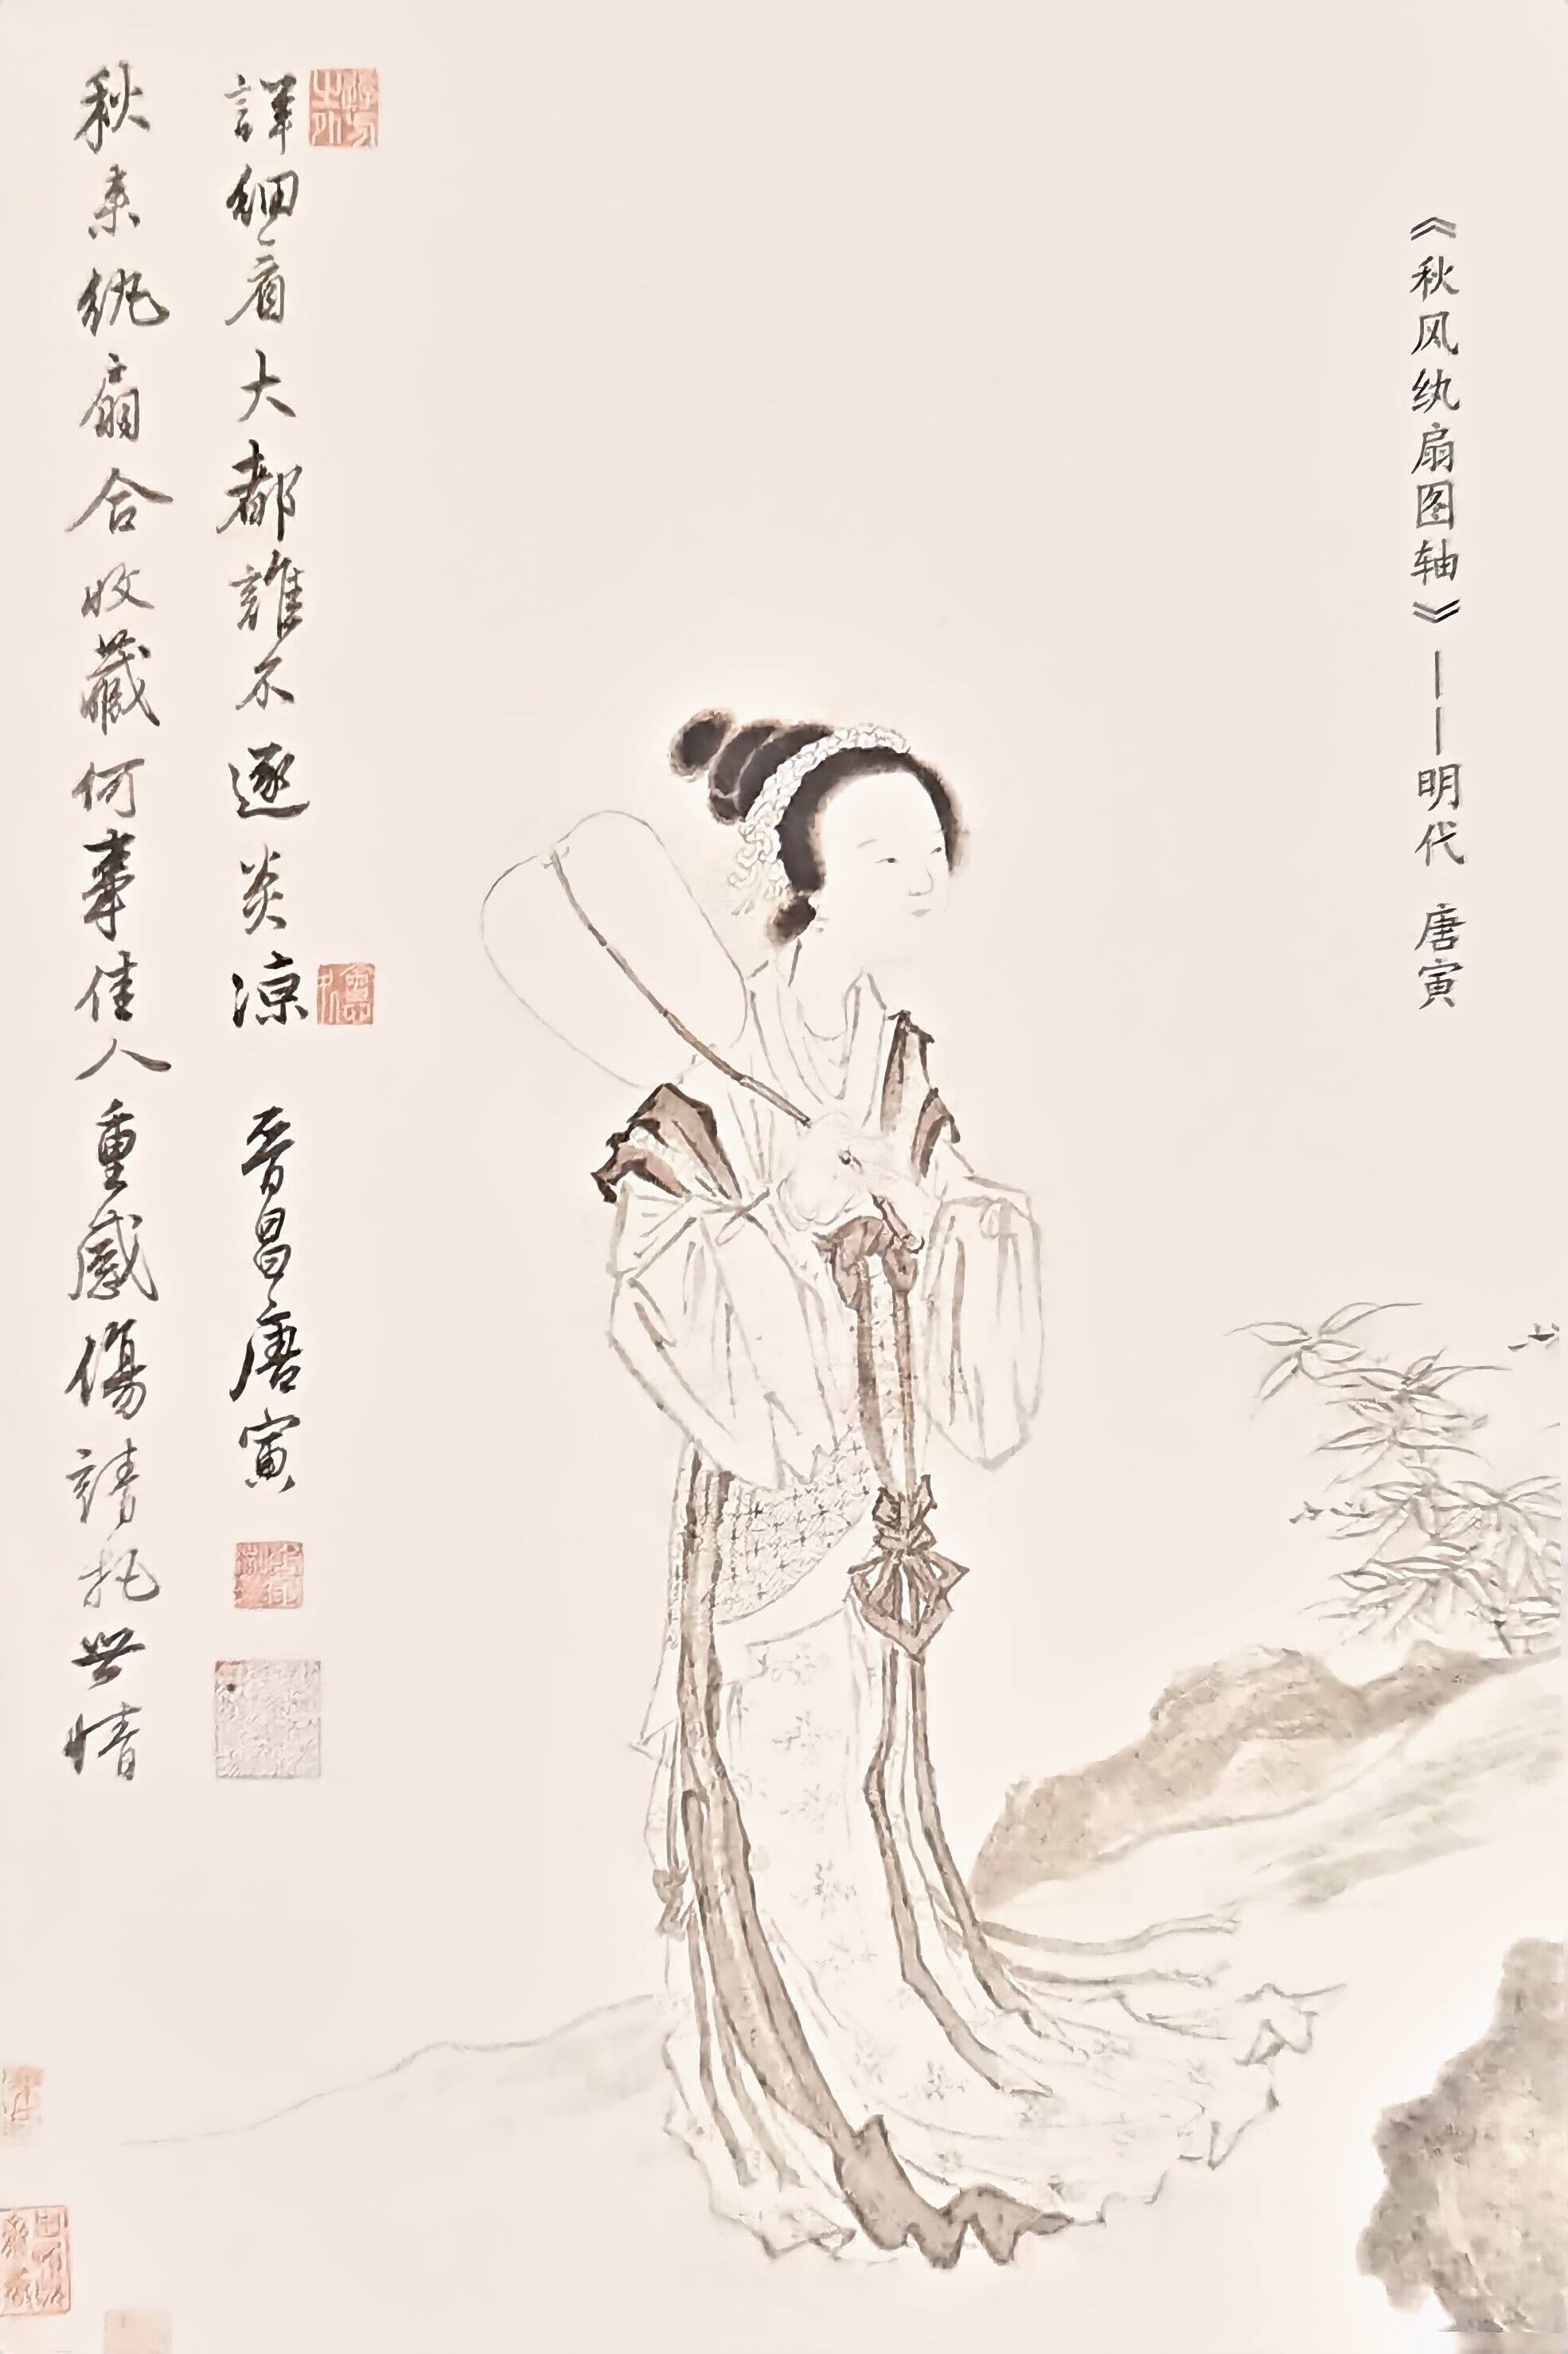 《秋风纨扇图轴》——明代 唐寅
秋来紈扇合收藏何事佳人重感傷請托世情
詳細看大都誰不逐炎涼 晋昌唐寅